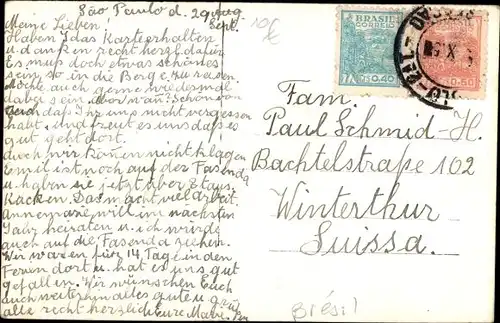 São Paulo d. 29 Aug.
Meine Lieben!
Haben Idas Karte erhalten
u. danken recht herzl. dafür
Es muss doch etwas schönes
sein so in die Berge zu reisen
Möchte auch gerne wiedermal
dabei sein. Aber wann? Schön von
Euch daß Ihr uns nicht vergessen
habt. Und freut es uns daß es
gut geht dort.
auch wir können nicht klagen
Emil ist noch auf der Fasenda
u. haben sie jetzt über 8 taus.
Das macht viel Arbeit.
Annemarie will im nächsten
Jahr heiraten u. ich würde
auch auf die Fasenda ziehen.
Wir waren für 14 Tage in den
Ferien dort u. hat es uns gut
gefallen. Wir wünschen Euch
auch weiterhin alles gute u. grüß
alle recht herzlich Eure
10€
BRASIL
CORREIO
0,40
0,60
SÃO
Fam.
Paul Schmid-H.
Bachtelstraße 102
Winterthur
Suissa.
Brésil